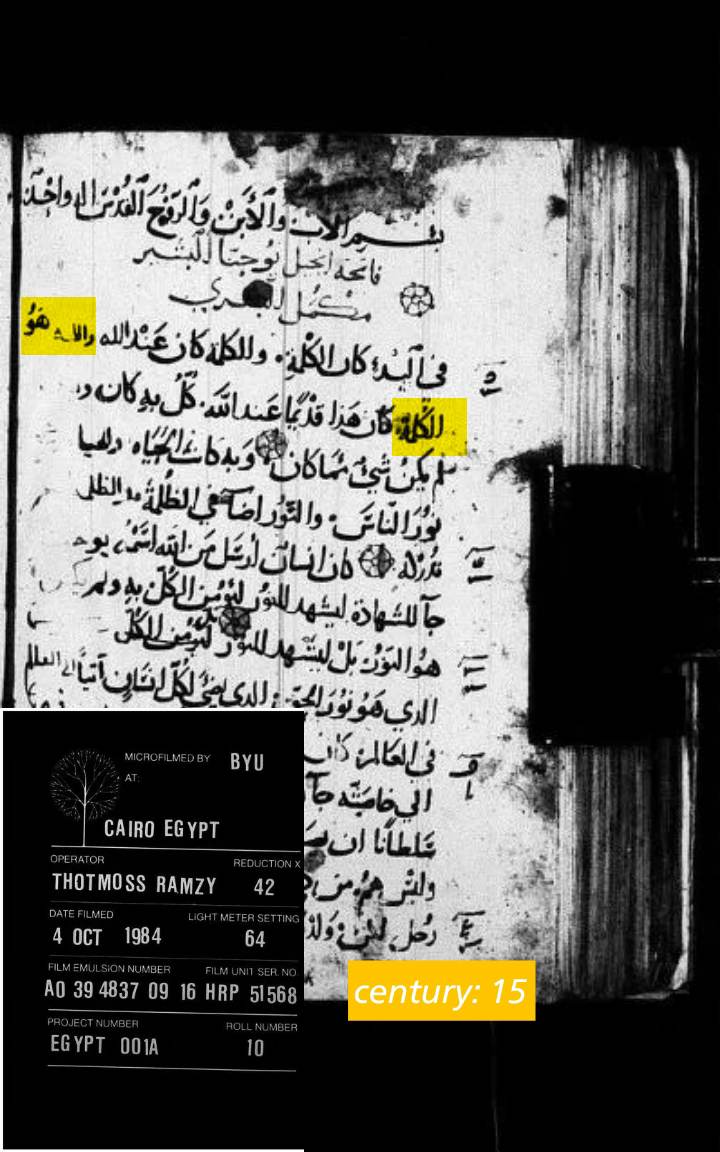 بسم الاب والابن والروح القدس اله واحد
فاتحة انجيل يوحنا البشير
في البدء كان الكلمة والكلمة كان عند الله والله هو
الكلمة كان هذا قديما عند الله كل به كان
لم يكن شيء مما كان وبه كانت الحياه
نور الناس والنور اضا في الظلمة
كان انسان ارسل من الله اسمه
جا للشهادة ليشهد للنور ليومن الكل به ولم
هو النور بل ليشهد للنور ليومن الكل
الدي هو نور الحق الدي يضي لكل انسان اتيا الي العالم
في العالم كان
الي خاصته جا
سلطانا ان
رجل لكن ولد
MICROFILMED BY BYU
AT:
CAIRO EGYPT
OPERATOR REDUCTION X
THOTMOSS RAMZY 42
DATE FILMED LIGHT METER SETTING
4 OCT 1984 64
FILM EMULSION NUMBER FILM UNIT SER. NO.
A0 39 4837 09 16 HRP 51568
PROJECT NUMBER ROLL NUMBER
EGYPT 001A 10
century: 15